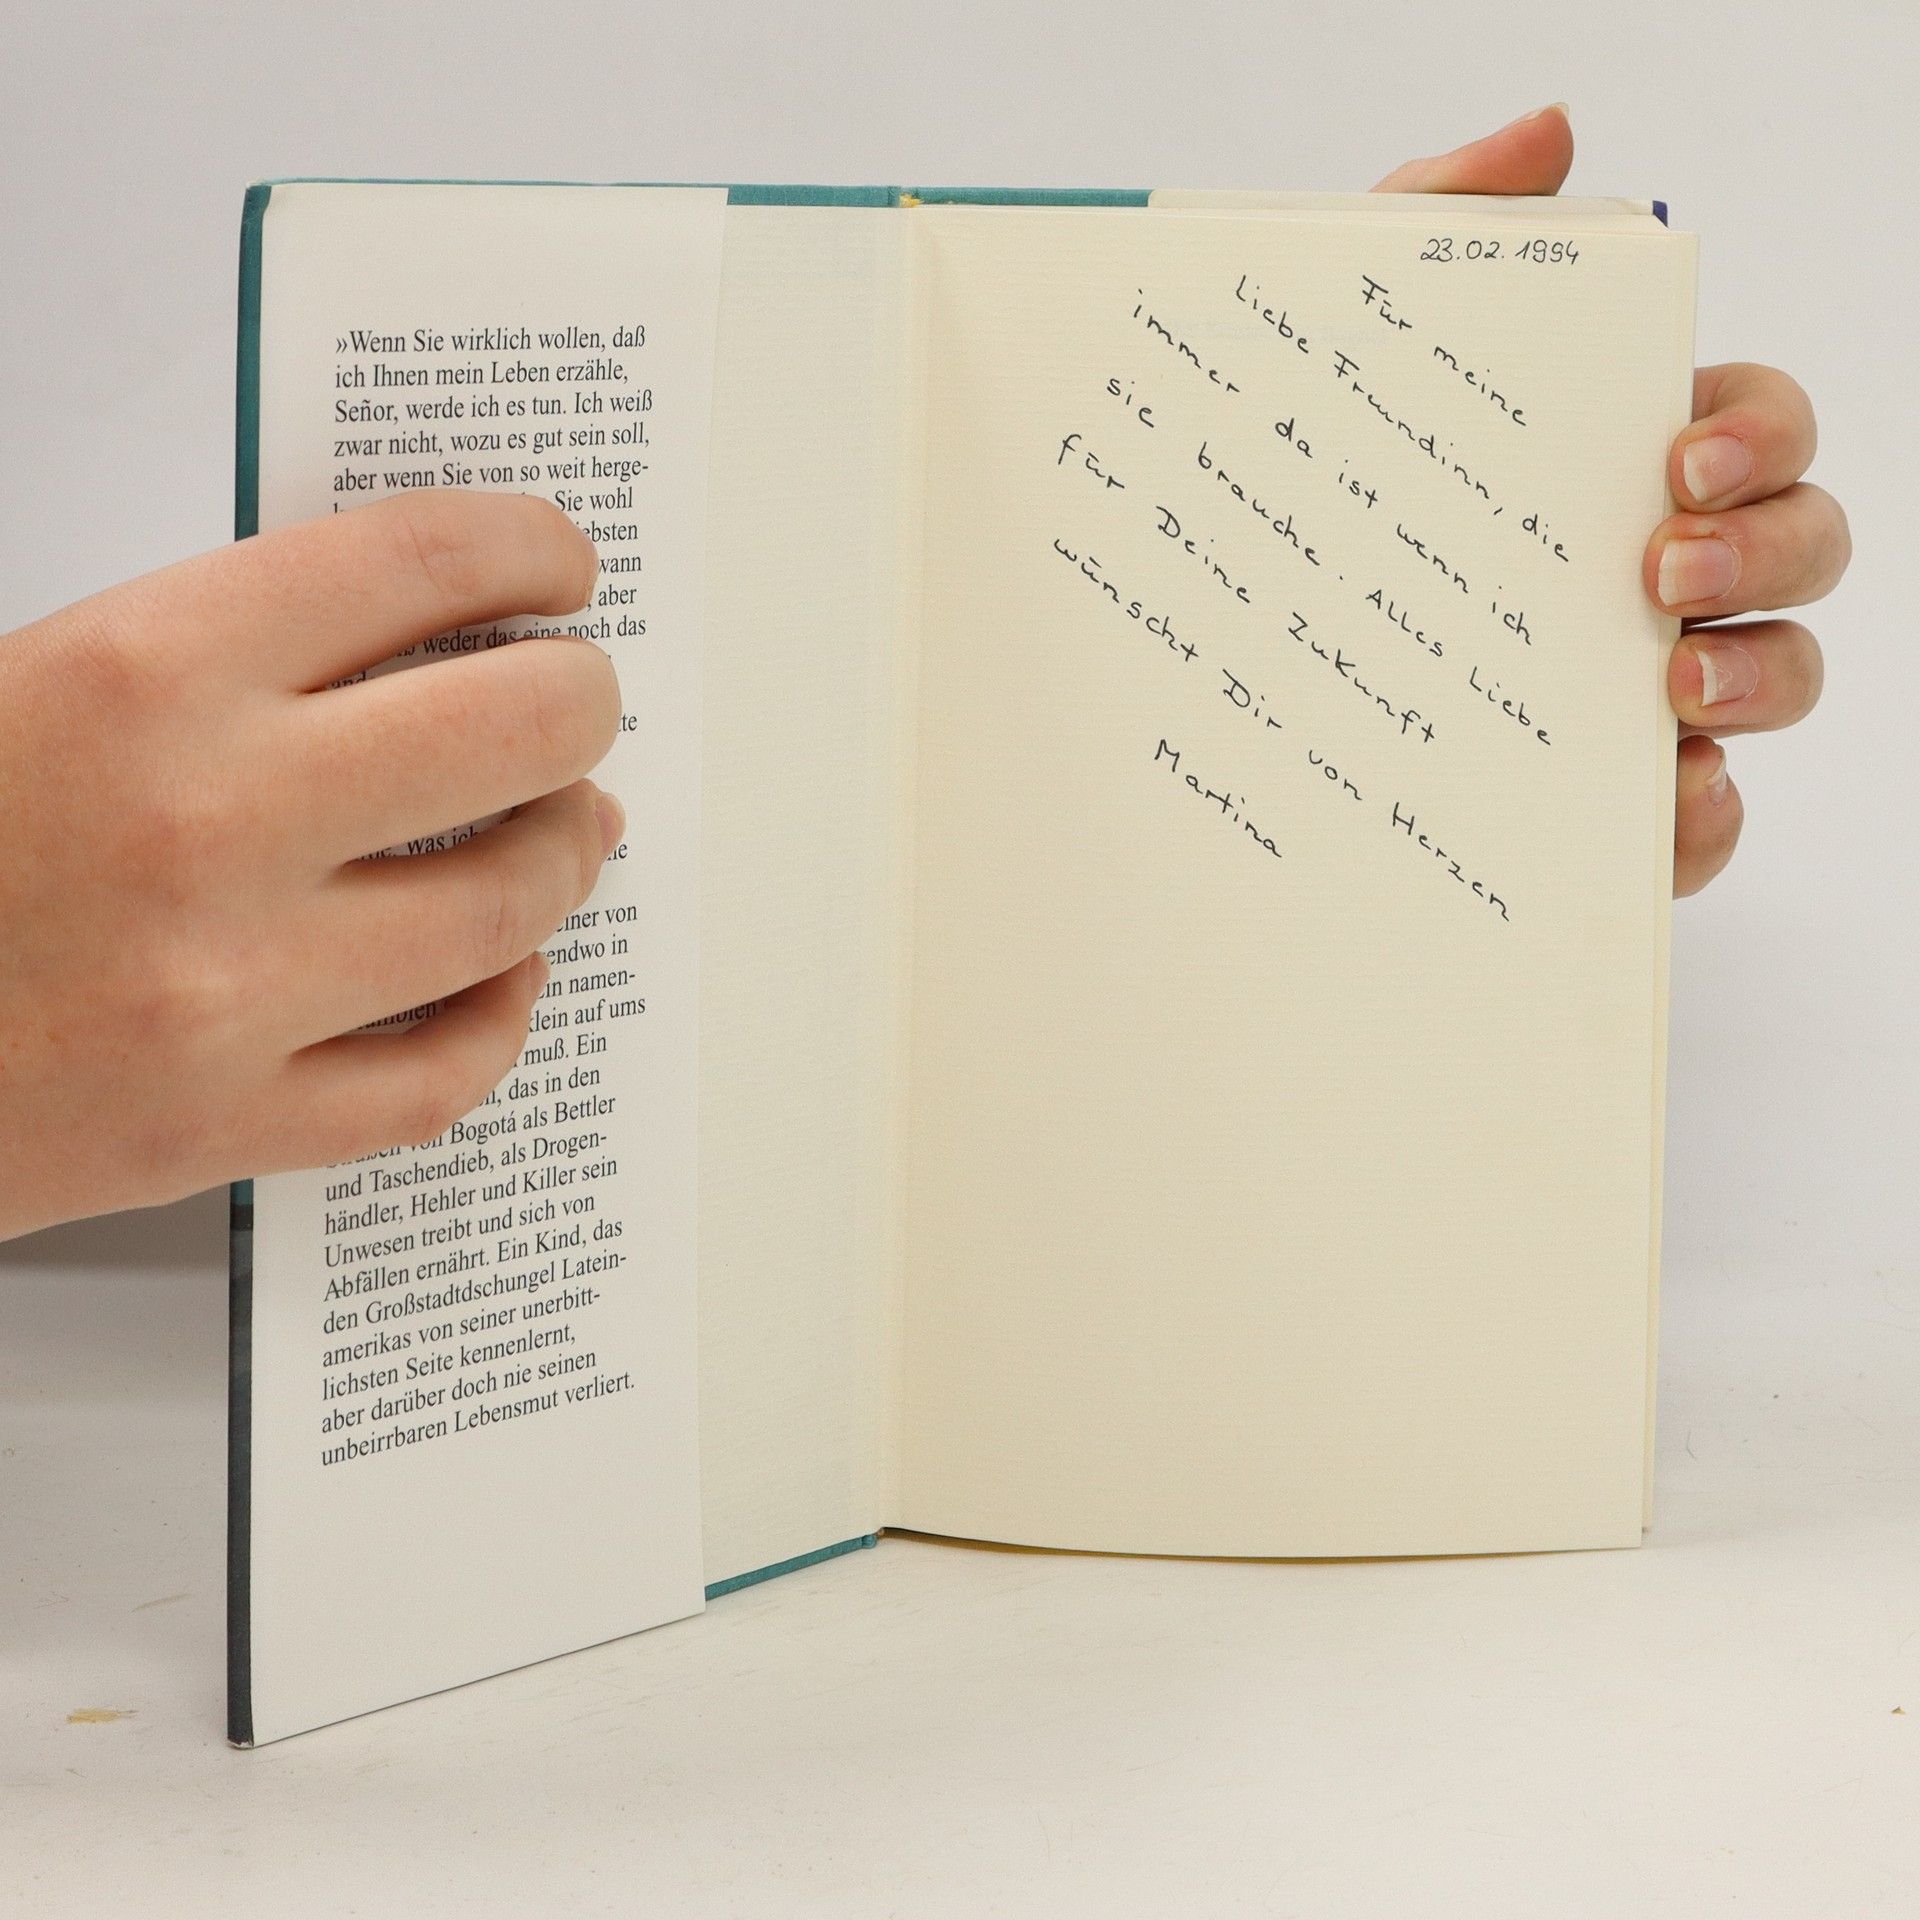 »Wenn Sie wirklich wollen, daß
ich Ihnen mein Leben erzähle,
Señor, werde ich es tun. Ich weiß
zwar nicht, wozu es gut sein soll,
aber wenn Sie von so weit herge-
Sie wohl
wann
, aber
weder das eine noch das
Was ich
einer von
in
ein namen-
klein auf ums
muß. Ein
, das in den
von Bogotá als Bettler
und Taschendieb, als Drogen-
händler, Hehler und Killer sein
Unwesen treibt und sich von
Abfällen ernährt. Ein Kind, das
den Großstadtdschungel Latein-
amerikas von seiner unerbitt-
lichsten Seite kennenlernt,
aber darüber doch nie seinen
unbeirrbaren Lebensmut verliert.
23.02.1994
Für meine
liebe Freundinn, die
immer da ist wenn ich
sie brauche. Alles Liebe
für Deine Zukunft
wünscht Dir von Herzen
Martina